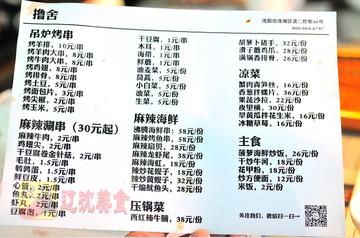 撸舍
沈阳市沈河区北二经街46号
吊炉烤串
烤羊排，10元/串
烤羊肉大串，8元/串
烤牛肉大串，8元/串
烤鸡翅，8元/串
烤排骨，8元/串
烤土豆，5元/串
烤面包片，3元/串
烤尖椒，2元/串
烤玉米，5元/串
麻辣涮串（30元起）
麻辣牛肉，2元/串
鸡翅尖，2元/串
干豆腐卷金针菇，2元/串
毛肚，1.5元/串
鹌鹑蛋，1.5元/串
鲜豆皮，1.5元/串
心管，2元/串
鱼丸，2元/串
虾丸，2元/串
豆腐泡，1元/串
干豆腐，1元/串
木耳，1元/串
海带，1元/串
鲜蘑，1元/串
油麦菜，5元/串
茼蒿，5元/串
小白菜，5元/串
油菜，5元/串
生菜，5元/串
麻辣海鲜
沸腾海鲜串，58元/份
麻辣烤鱼串，58元/份
麻辣扇贝，28元/份
麻辣龙虾尾，38元/份
麻辣蚬子，18元/份
辣炒花甲，18元/份
辣炒黄蚬子，18元/份
干煸鱿鱼头，28元/份
压锅菜
西红柿牛腩，38元/份
胡萝卜猪手，32元/份
满锅香排骨，26元/份
凉菜
香葱拌猪片，36元/份
果蔬沙拉，22元/份
夜里横，30元/份
冰糖草莓，16元/份
主食
菠萝海鲜炒饭，26元/份
干炒牛河，18元/份
花甲粉，18元/份
炒方便面，12元/份
米饭，2元/份
关注我们，微信扫一扫→
辽沈美食